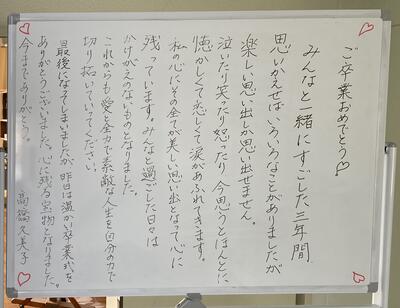 ご卒業おめでとう♡
みんなと一緒にすごした三年間
思いかえせばいろいろなことがありましたが
楽しい思い出しか思い出せません。
泣いたり笑ったり怒ったり 今思うとほんとに
懐かしくて恋しくて涙があふれてきます。
私の心にその全てが美しい思い出となって心に
残っています。みんなと過ごした日々は
かけがえのないものとなりました。
これからも愛と全力で素敵な人生を自分の力で
切り拓いていってください。
最後になってしまいましたが 昨日は温かい卒業式を
ありがとうございました。心に残る宝物となりました。
今までありがとう。 高橋久美子